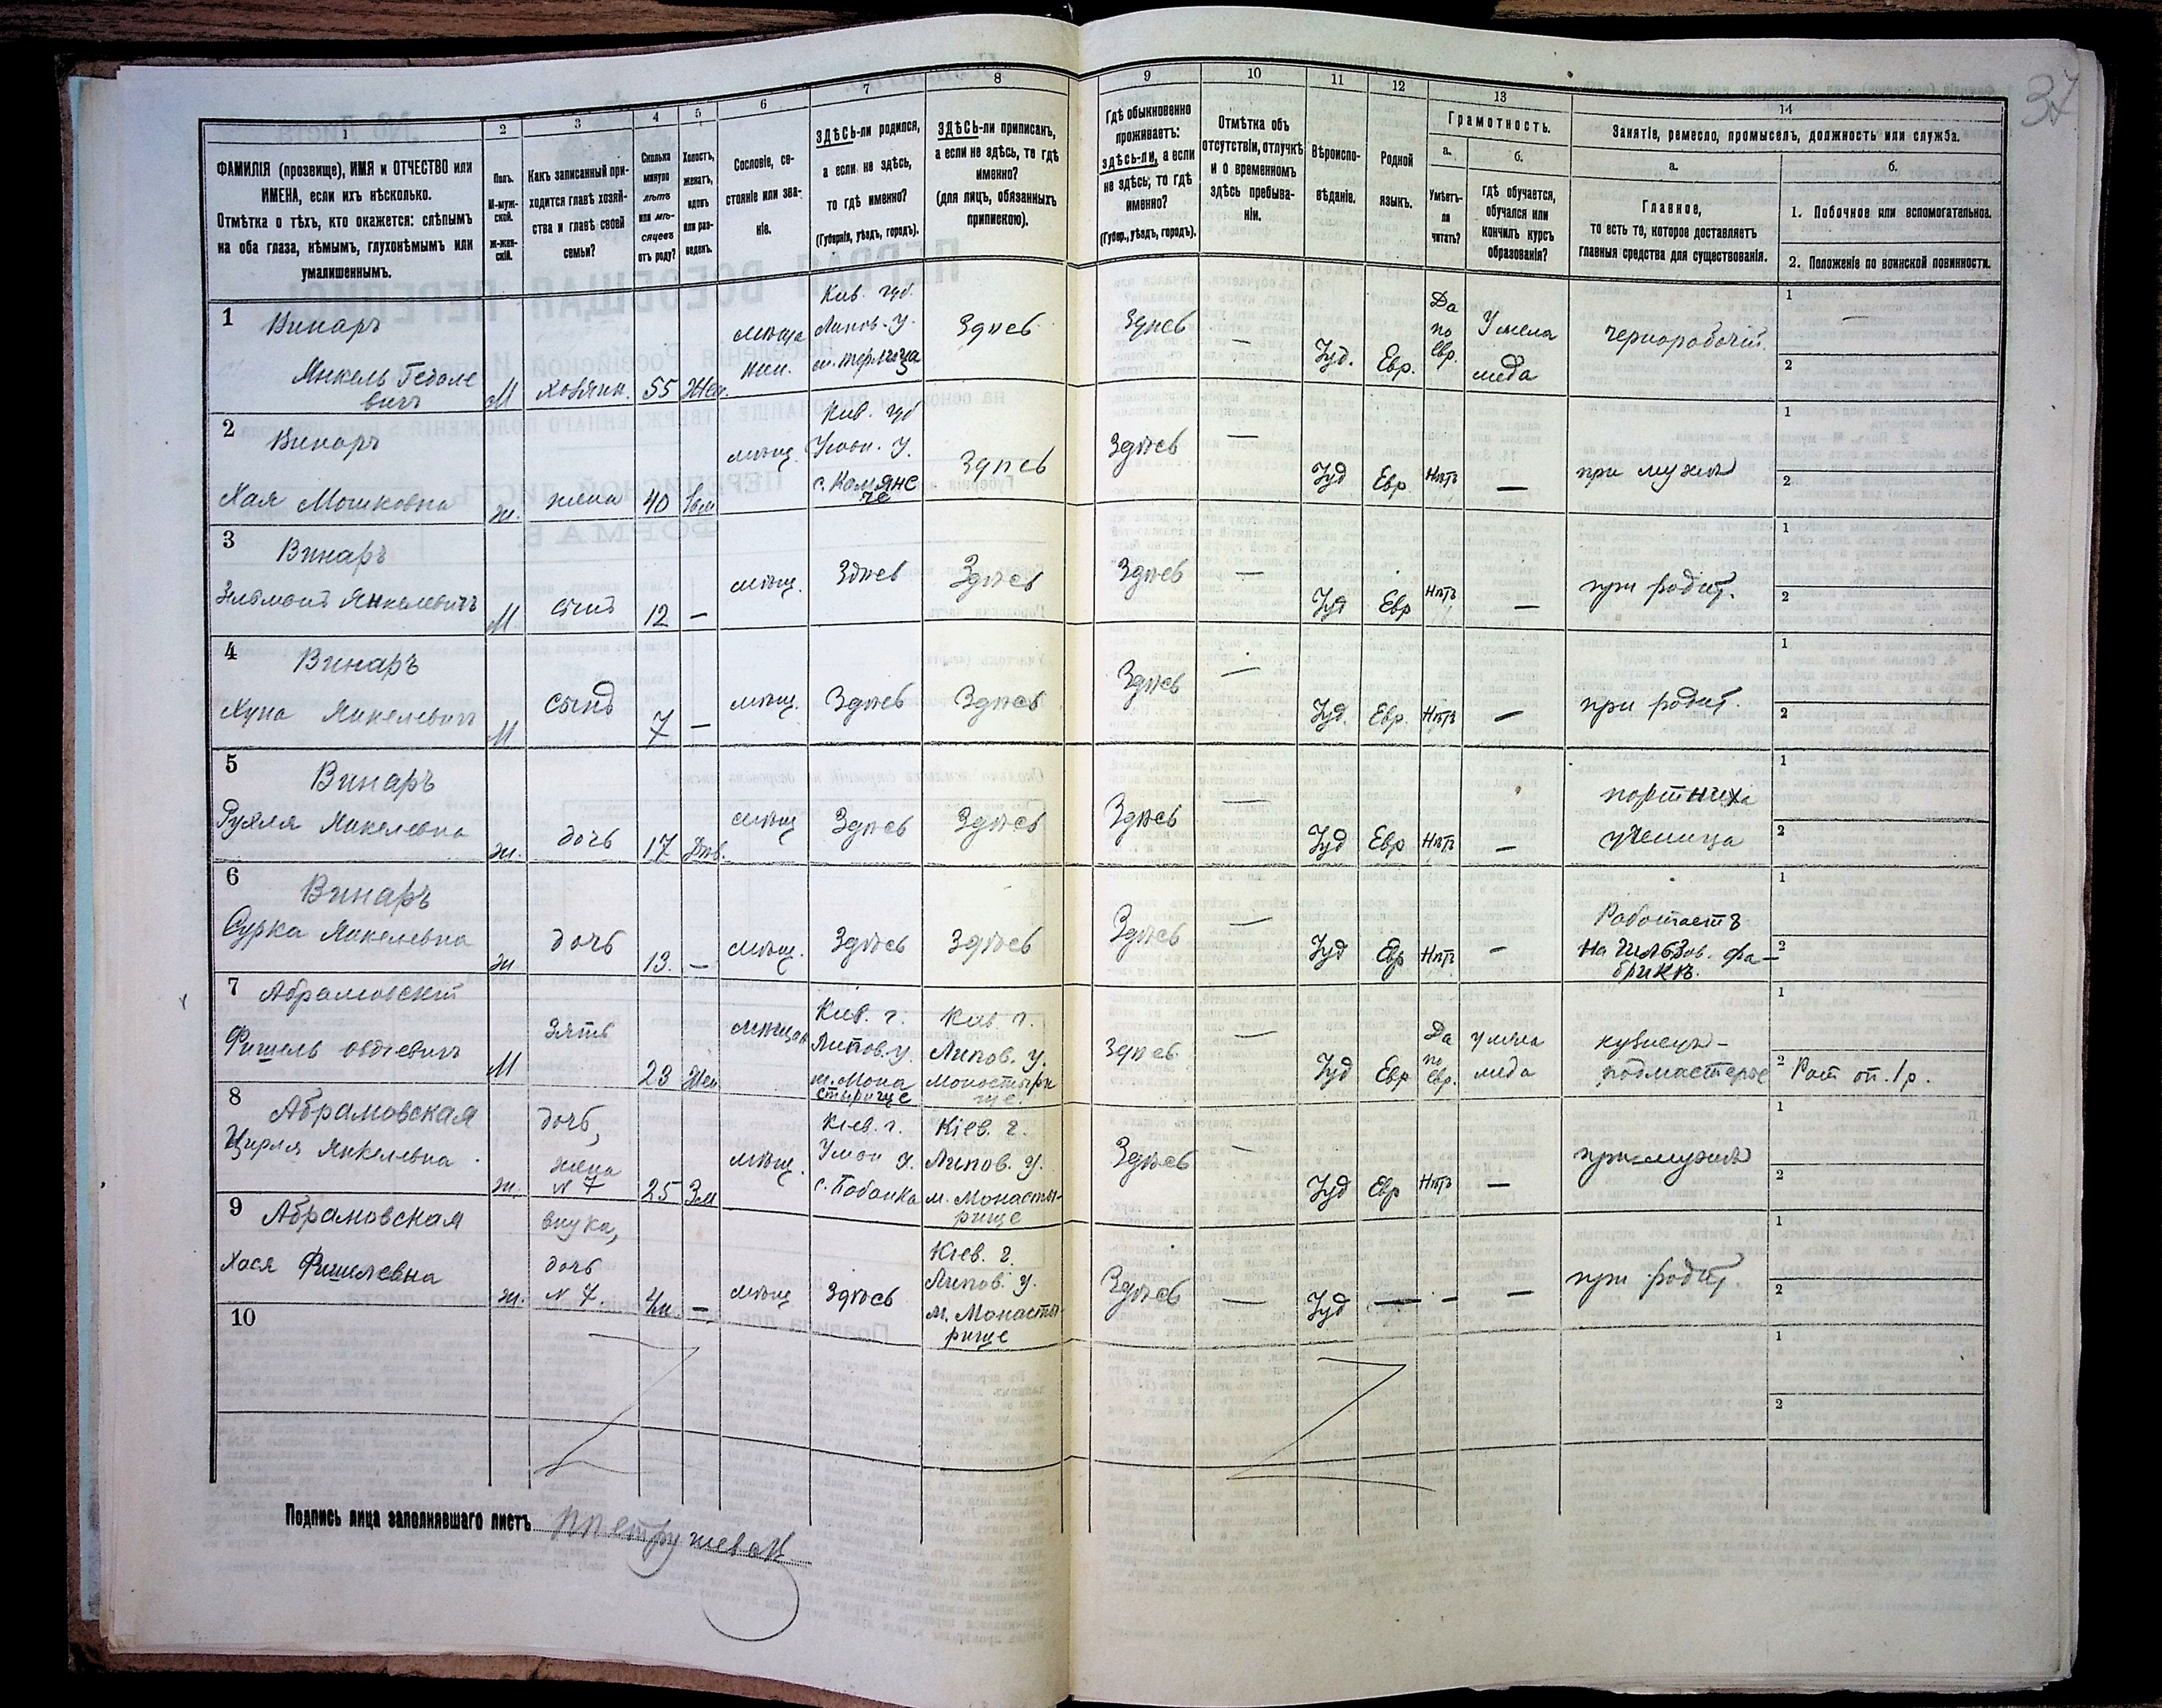 37
1 2 3 4 5 6 7 8 9 10 11 12 13 14
ФАМИЛІЯ (прозвище), ИМЯ и ОТЧЕСТВО или
ИМЕНА, если ихъ нѣсколько.
Отмѣтка о тѣхъ, кто окажется: слѣпымъ
на оба глаза, нѣмымъ, глухонѣмымъ или
умалишеннымъ.
Полъ.
М-муж-
ской.
ж-жен-
скій.
Какъ записанный при-
ходится главѣ хозяй-
ства и главѣ своей
семьи?
Сколько
минуло
лѣтъ
или мѣ-
сяцевъ
отъ роду?
Холостъ,
женатъ,
вдовъ
или раз-
веденъ.
Сословіе, со-
стояніе или зва-
ніе.
ЗДѢСЬ-ли родился,
а если не здѣсь,
то гдѣ именно?
(Губернія, уѣздъ, городъ).
ЗДѢСЬ-ли приписанъ,
а если не здѣсь, то гдѣ
именно?
(для лицъ, обязанныхъ
припискою).
Гдѣ обыкновенно
проживаетъ:
здѣсь-ли, а если
не здѣсь, то гдѣ
именно?
(Губер., уѣздъ, городъ).
Отмѣтка объ
отсутствіи, отлучкѣ
и о временномъ
здѣсь пребыва-
ніи.
Вѣроиспо-
вѣданіе.
Родной
языкъ.
Грамотность.
а.
Умѣетъ-
ли
читать?
б.
гдѣ обучается,
обучался или
кончилъ курсъ
образованія?
Занятіе, ремесло, промыселъ, должность или служба.
а.
Главное,
то есть то, которое доставляетъ
главныя средства для существованія.
б.
1. Побочное или вспомогательное.
2. Положеніе по воинской повинности.
1 Винаръ
Янкель
вичъ
М хозяин. 55 Жен.
Кив. губ.
Липов. у.
Здѣсь
Здѣсь
—
Іуд. Евр.
Да
по
Евр.
У мела
меда
чернорабочій.
1 —
2
2 Винаръ
Хая Мошковна
ж. жена 40 мѣщ.
Кив. губ
Уман. у.
Здѣсь
Здѣсь —
Іуд Евр Нѣтъ —
при мужѣ
1
2
3 Винаръ
Янкелевичъ
М сынъ 12 — мѣщ. Здѣсь Здѣсь
Здѣсь — Іуд Евр Нѣтъ —
при родит.
1
2
4 Винаръ
Янкелевичъ
М сынъ 7 — мѣщ. Здѣсь Здѣсь
Здѣсь — Іуд. Евр. Нѣтъ —
при родит.
1
2
5 Винаръ
Рухля Янкелевна
ж. дочь 17 Дѣв. мѣщ Здѣсь Здѣсь
Здѣсь — Іуд Евр Нѣтъ —
портниха
ученица
1
2
6 Винаръ
Сурка Янкелевна
ж дочь 13. — мѣщ. Здѣсь Здѣсь
Здѣсь — Іуд Евр Нѣтъ —
Работаетъ
на гильзов. фа-
брикѣ.
1
2
7 Абрамовскій
Фишель Овдіевичъ
М зять 23 Жен мѣщан
Кив. г.
Липов. у.
м. Мона
стырище
Кив. г.
Липов. у.
Моностыри
ще.
Здѣсь — Іуд Евр
Да
по
Евр.
у мела
меда
кузнецъ -
подмастерье
1
2 Рат оп. 1 р.
8 Абрамовская
Цирля Янкелевна
ж. дочь,
жена
N 7
25 Зм мѣщ.
Кіев. г.
Уман у.
Кіев. г.
Липов. у.
м. Монасты-
рище
Здѣсь — Іуд Евр Нѣтъ —
при мужѣ
1
2
9 Абрамовская
Хася Фишелевна
ж. внука,
дочь
N 7.
4м — мѣщ Здѣсь
Кіев. г.
Липов. у.
м. Монасты-
рище
Здѣсь — Іуд — — —
при родит.
1
2
10
1
2
Подпись лица заполнявшаго листъ